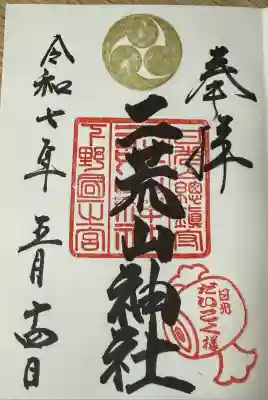 奉拝
二荒山神社
令和七年 五月 十四日
下野国一宮
日光
だいこく様